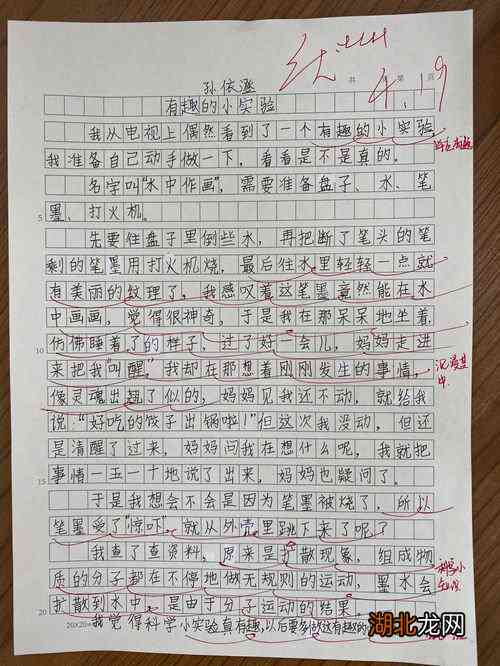 优
4.19
共 第 页
孙依涵
有趣的小实验
我从电视上偶然看到了一个有趣的小实验
我准备自己动手做一下,看看是不是真的。
名字叫"水中作画",需要准备盘子、水、笔
墨、打火机。
5
先要往盘子里倒些水,再把断了笔头的笔
剩的笔墨用打火机烧,最后往水里轻轻一点就
有美丽的纹理了,我感叹着这笔墨竟然能在水
中画画,觉得很神奇。于是我在那呆呆地坐着,
仿佛睡着了的样子,过了好一会儿,妈妈走进
来把我"叫醒",我却在那想着刚刚发生的事情,
沉浸其中
像灵魂出翘了似的,妈妈见我还不动,就给我
说:"好吃的饺子出锅啦!"但这次我没动,但还
是清醒了过来,妈妈问我在想什么呢,我就把
15
事情一五一十地说了出来,妈妈也疑问了。
于是我想会不会是因为笔墨被烧了,所以
笔墨受了"惊吓",就从外壳里跳下来了呢?
我查了查资料,原来是扩散现象,组成物
质的分子都在不停地做无规则的运动,墨水会
20
扩散到水中,是由于分子运动的结果。
20×20=
我觉得科学小实验真有趣,以后要多做这有趣的
湖北龙网